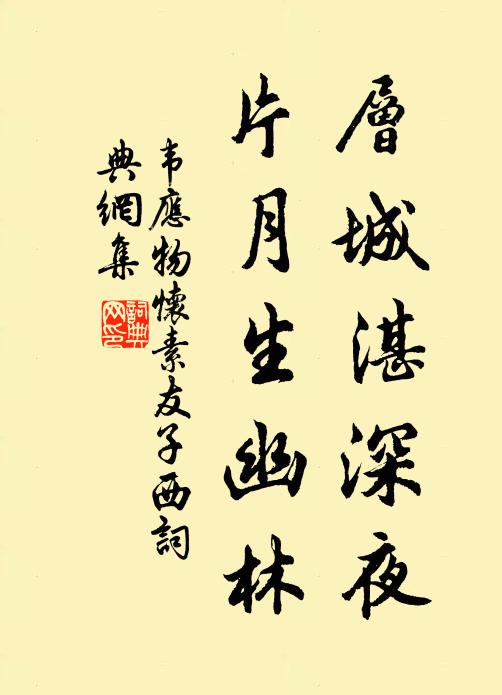 層城湛深夜
片月生幽林
韦應物懷素友子西詞
典網集
詞典
网印